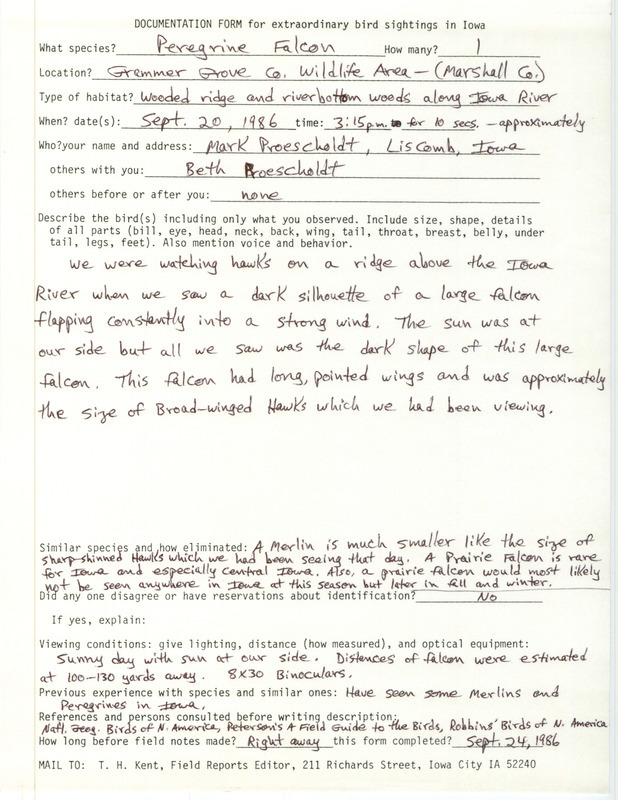 DOCUMENTATION FORM for extraordinary bird sightings in Iowa
What species? Peregrine Falcon How many? 1
Location? Grammer Grove Co. Wildlife Area - (Marshall Co.)
Type of habitat? Wooded ridge and riverbottom woods along Iowa River
When? date(s): Sept. 20, 1986 time: 3:15 p.m. to for 10 secs. - approximately
Who?your name and address: Mark Proescholdt, Liscomb, Iowa
others with you: Beth Proescholdt
others before or after you: none
Describe the bird(s) including only what you observed. Include size, shape, details
of all parts (bill, eye, head, neck, back, wing, tail, throat, breast, belly, under
tail, legs, feet). Also mention voice and behavior.
We were watching hawks on a ridge above the Iowa
River when we saw a dark silhouette of a large falcon
flapping constantly into a strong wind. The sun was at
our side but all we saw was the dark shape of this large
falcon. This falcon had long, pointed wings and was approximately
the size of Broad-winged Hawks which we had been viewing.
Similar species and how eliminated: A Merlin is much smaller like the size of
sharp-shinned Hawks which we had been seeing that day. A Prairie Falcon is rare
for Iowa and especially central Iowa. Also, a prairie falcon would most likely
not be seen anywhere in Iowa at this season but later in fall and winter.
Did any one disagree or have reservations about identification? No
If yes, explain:
Viewing conditions: give lighting, distance (how measured), and optical equipment:
Sunny day with sun at our side. Distences of falcon were estimated
at 100-130 yards away. 8X30 Binoculars.
Previous experience with species and similar ones: Have seen some Merlins and
Peregrines in Iowa.
References and persons consulted before writing description:
Natl. Geog. Birds of N. America, Peterson's A Field Guide to the Birds, Robbins' Birds of N. America
How long before field notes made? Right away this form completed? Sept. 24, 1986
MAIL TO: T. H. Kent, Field Reports Editor, 211 Richards Street, Iowa City IA 52240